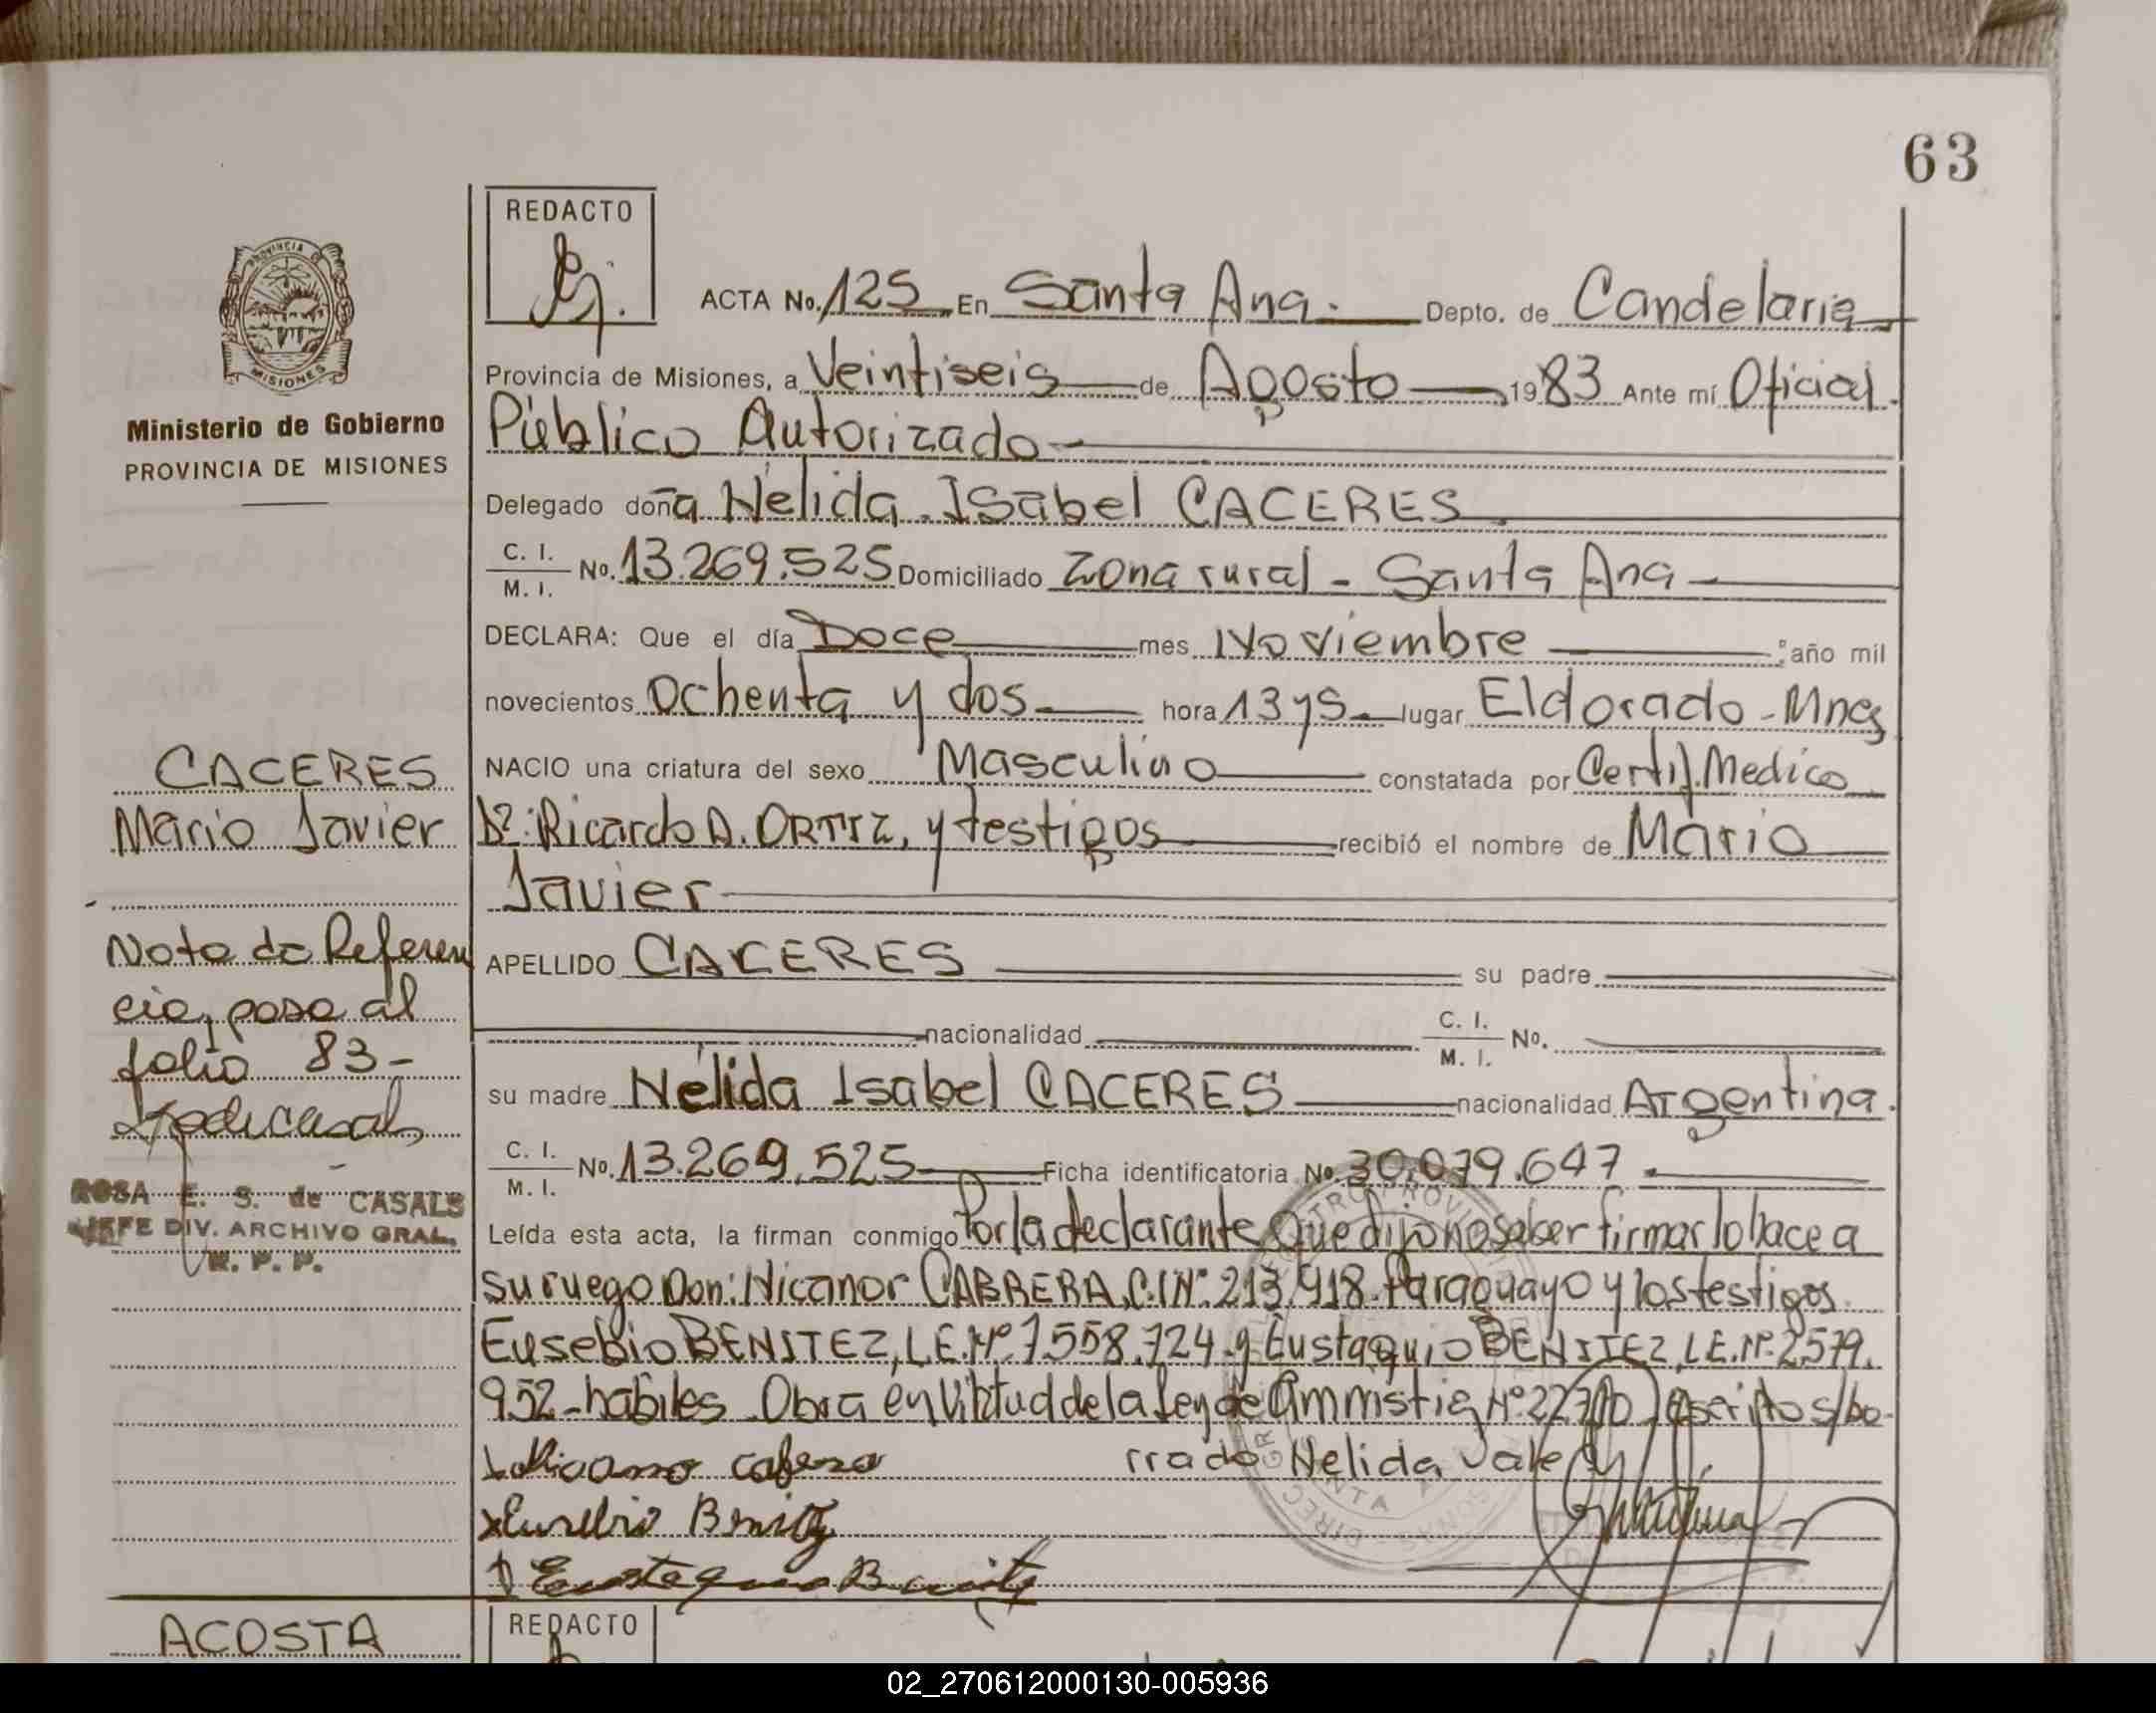 63
REDACTO
ACTA No. 125 En Santa Ana. Depto. de Candelaria
Provincia de Misiones, a Veintiseis de Agosto 1983 Ante mí Oficial
Ministerio de Gobierno
PROVINCIA DE MISIONES
Público Autorizado
Delegado doña Nélida Isabel CACERES
C. I.
M. I. No. 13.269.525 Domiciliado Zona rural - Santa Ana
DECLARA: Que el día Doce mes Noviembre año mil
novecientos Ochenta y dos hora 13 y 5 lugar Eldorado - Mnes
CACERES
Mario Javier
NACIO una criatura del sexo Masculino constatada por Certif. Medico
Dr: Ricardo A. ORTIZ, y testigos recibió el nombre de Mario
Javier
Nota de Referen
cia, pasa al
folio 83-
APELLIDO CACERES su padre
nacionalidad C. I.
M. I. No.
su madre Nélida Isabel CACERES nacionalidad Argentina.
C. I.
M. I. No. 13.269.525 Ficha identificatoria No. 30.079.647
ROSA E. S. de CASALS
JEFE DIV. ARCHIVO GRAL.
R. P. P.
Leída esta acta, la firman conmigo Por la declarante que dijo no saber firmar lo hace a
su ruego Don: Nicanor CABRERA, C.I Nº 213.918. Paraguayo y los testigos
Eusebio BENITEZ, L.E. Nº 7.558.724 y Eustaquio BENITEZ, L.E. Nº 2.579.
952 - hábiles. Obra en Virtud de la Ley de Ammistia, Nº 22.710 escrito s/bo-
rrado Nelida Vale
Eusebio Benitez
Eustaquio Benitez
ACOSTA
REDACTO
02_270612000130-005936